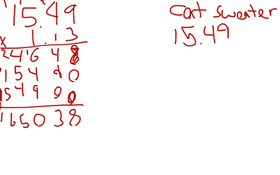 15.49
x 1.13
24648
15490
154900
165038
cat sweater
15.49